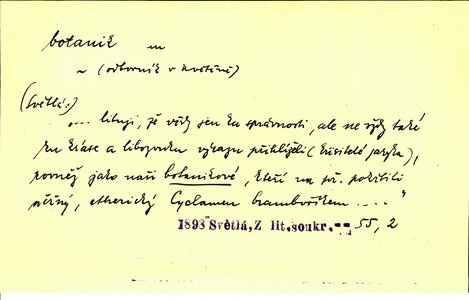 botanik m
~ (odborník v květeně)
(Světlá.)
"... lituji, že vždy jen ku správnosti, ale ne vždy také
ku kráse a libozvuku výrazu přihlíželi (křisitelé jazyka),
rovněž jako naši botanikové, kteří na př. pokřtili
něžný, etherický Cyclamen bramboříkem ...."
1893 Světlá, Z lit. soukr. -- 55, 2